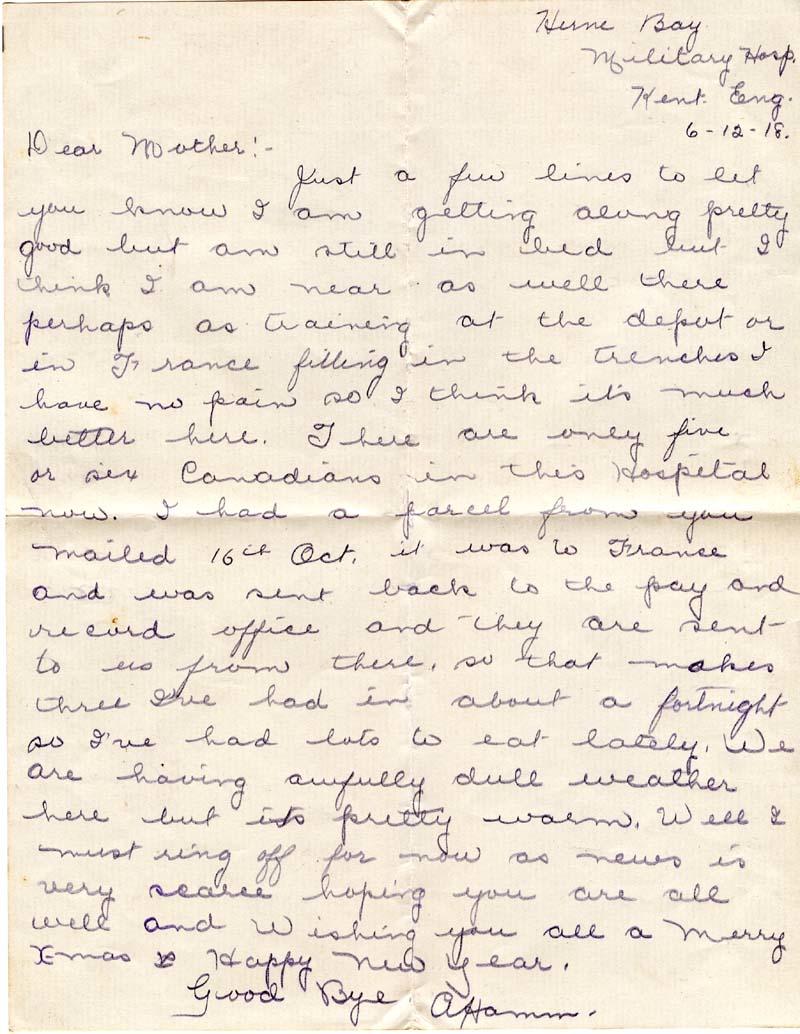 Herne Bay
Military Hosp.
Kent. Eng.
6-12-18.
Dear Mother:-
Just a few lines to let
you know I am getting along pretty
good but am still in bed but I
think I am near as well there
perhaps as training at the depot or
in France filling in the trenches I
have no pain so I think it's much
better here. There are only five
or six Canadians in this Hospital
now. I had a parcel from you
mailed 16th Oct. it was to France
and was sent back to the pay and
record office and they are sent
to us from there, so that makes
three I've had in about a fortnight
so I've had lots to eat lately. We
are having awfully dull weather
here but its pretty warm. Well I
must ring off for now as news is
very scarce hoping you are all
well and Wishing you all a Merry
X-mas & Happy New Year.
Good Bye AHamm.